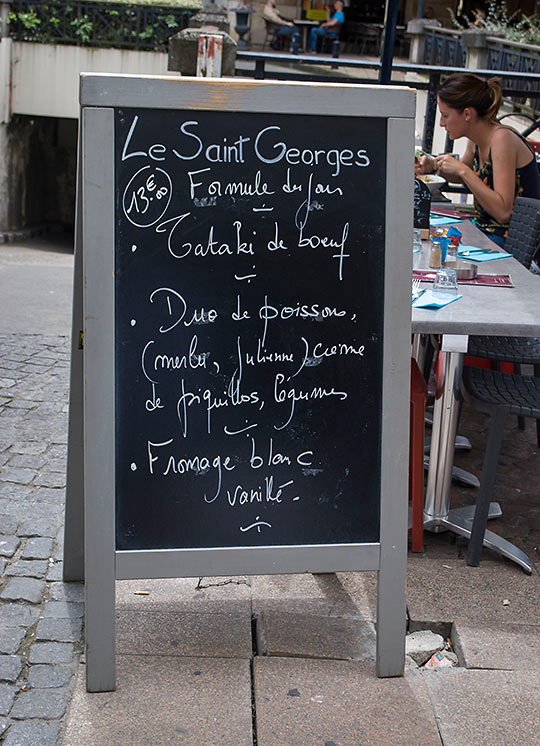 Le Saint Georges
13.€00
Formule du jour
• Tataki de boeuf
• Duo de poissons,
(merlu, julienne) crème
de piquillos, légumes
• Fromage blanc
vanillé.